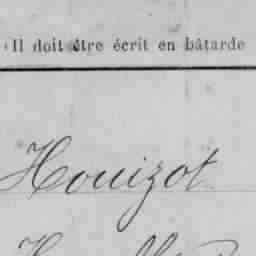 Il doit être écrit en bâtarde
Houizot